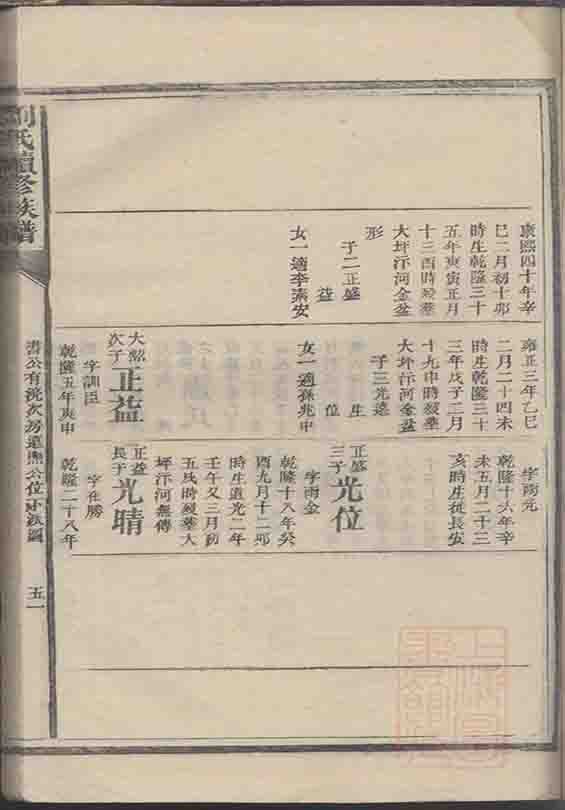 康熙四十年辛
巳二月初十卯
時生乾隆三十
五年庚寅正月
十三酉時殁葬
大坪汴河金盆
形
子二正盛
益
女一適李素安
雍正三年乙巳
二月二十四未
時生乾隆三十
三年戊子二月
十九申時殁葬
大坪汴河金盆
子三光遠
生
位
女一適孫兆中
大紹次子正益
字訓臣
乾隆五年庚申
字兩元
乾隆十六年辛
未五月二十三
亥時生徙長安
正盛三子光位
字兩金
乾隆十八年癸
酉九月十二卯
時生道光二年
壬午又三月初
五戌時殁葬大
坪汴河無傳
正益長子光晴
字在勝
乾隆二十八年
劉氏續修族譜
書公有洸次房遠熙公位下派圖
五一